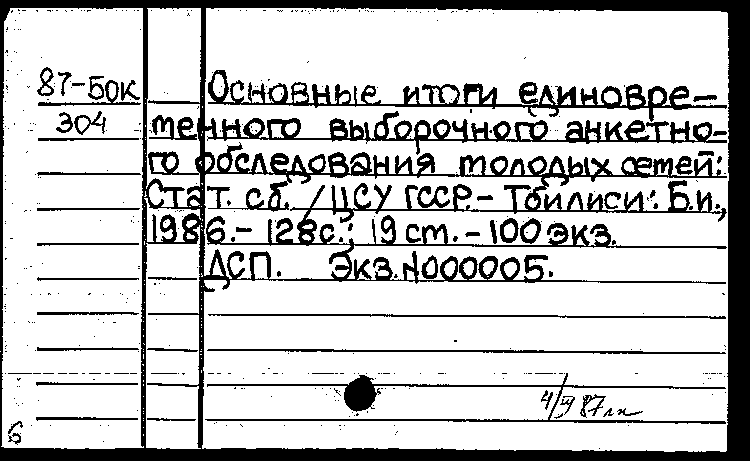 87-БОК Основные итоги единовре-
304 менного выборочного анкетно-
го обследования молодых семей:
Стат. сб. / ЦСУ ГССР.- Тбилиси: Б.и.,
1986.- 128с.; 19 см. - 100 экз.
ДСП. Экз.N000005.
6